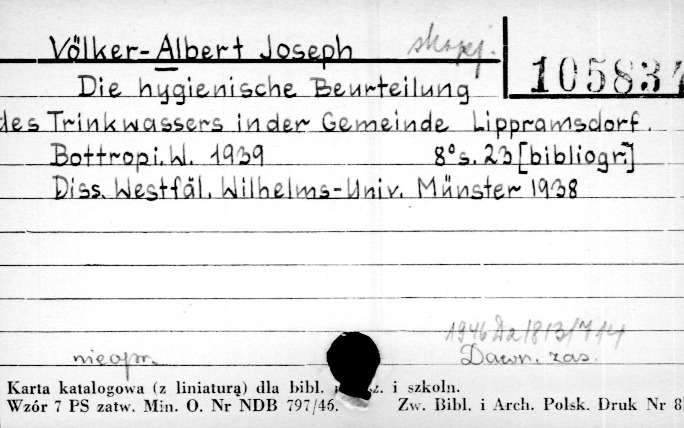 Völker-Albert Joseph skopj.
105837
Die hygienische Beurteilung
des Trinkwassers in der Gemeinde Lippramsdorf.
Bottrop i. W. 1939 8° s. 23 [bibliogr.]
Diss. Westfäl. Wilhelms-Univ. Münster 1938
1946 Da/813/714
nieopr. Dawn. zas.
Karta katalogowa (z liniaturą) dla bibl. i szkoln.
Wzór 7 PS zatw. Min. O. Nr NDB 797/46. Zw. Bibl. i Arch. Polsk. Druk Nr 8